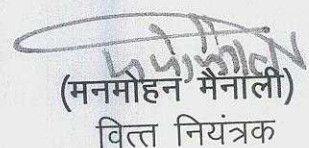 (मनमोहन मैनाली)
वित्त नियंत्रक